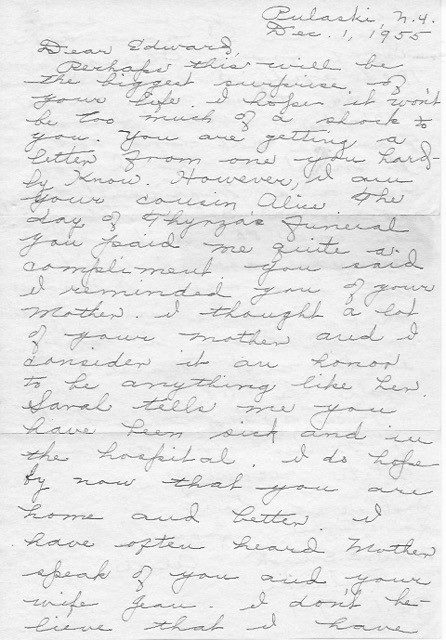 Pulaski, N.Y.
Dec. 1, 1955
Dear Edward,
Perhaps this will be
the biggest surprise of
your life. I hope it won't
be too much of a shock to
you. You are getting a
letter from one you hard-
ly know. However, I am
your cousin Alice. The
day of Thyrza's funeral
you paid me quite a
compliment. You said
I reminded you of your
Mother. I thought a lot
of your mother and I
consider it an honor
to be anything like her.
Sarah tells me you
have been sick and in
the hospital. I do hope
by now that you are
home and better. I
have often heard Mother
speak of you and your
wife Jean. I don't be-
lieve that I have